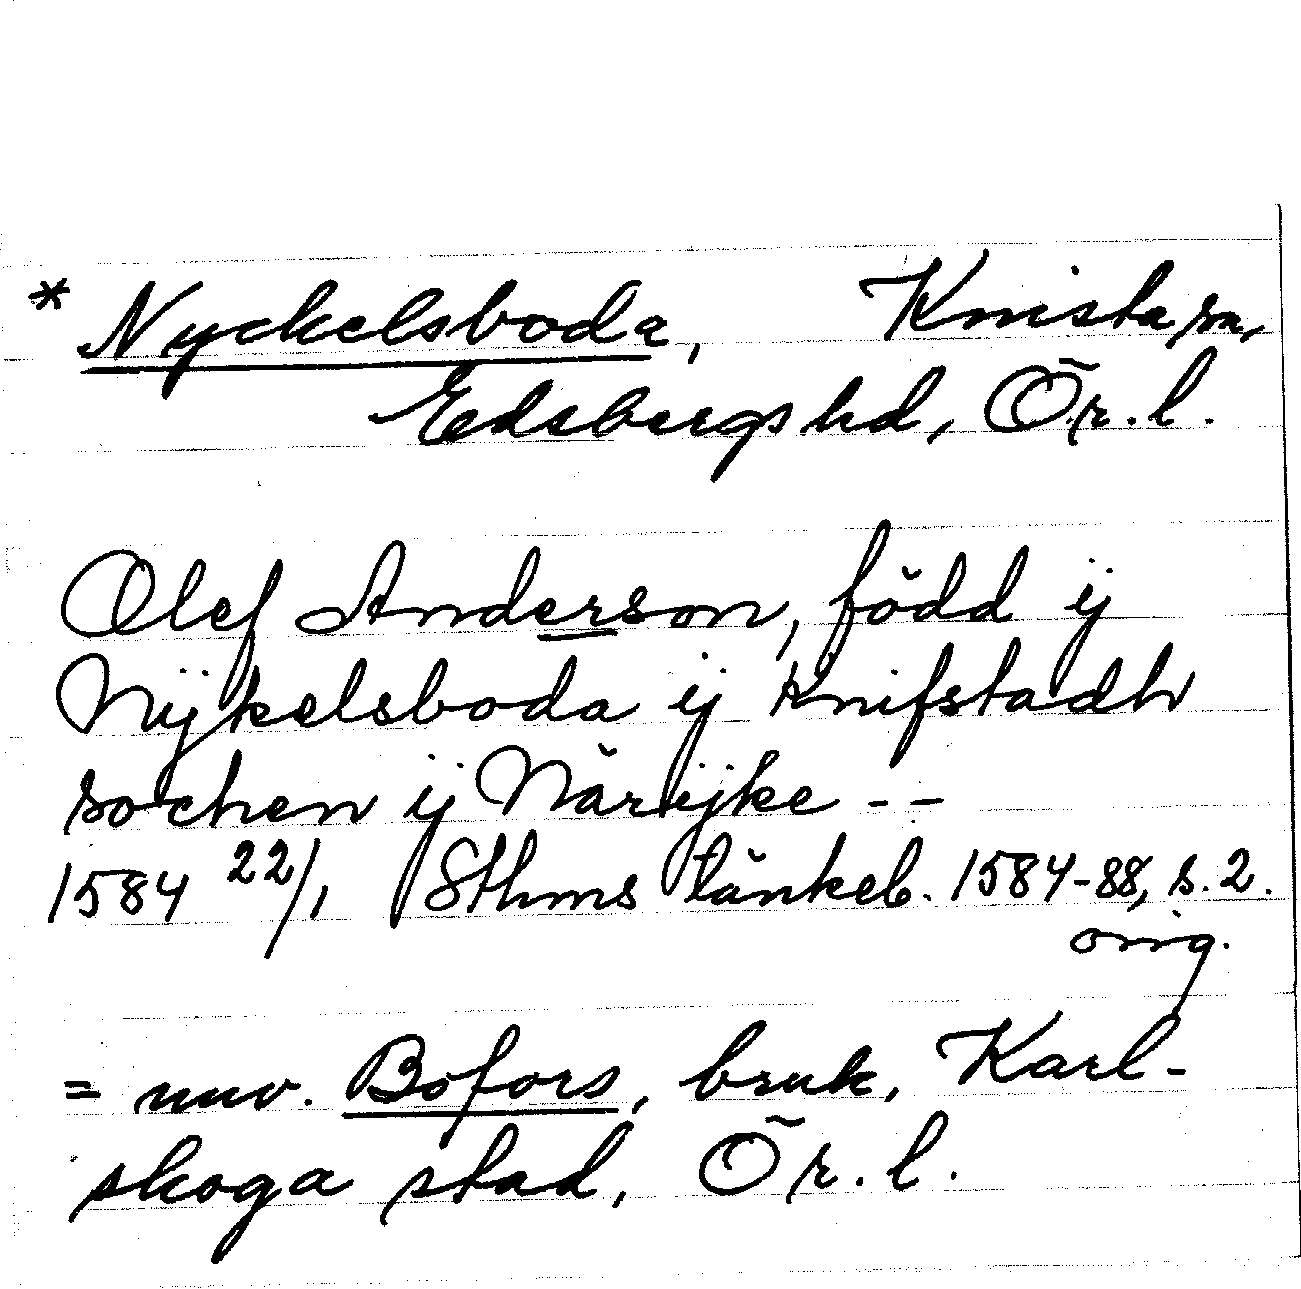 * Nyckelsboda, Knista sn,
Edsbergs hd, Ör. l.
Olef Anderson, född ij
Nijkelsboda ij Knifstadh
sochen ij Närijke - -
1584 22/1 Sthms tänkeb. 1584-88, s. 2.
orig.
= nuv. Bofors, bruk, Karl-
skoga stad, Ör. l.